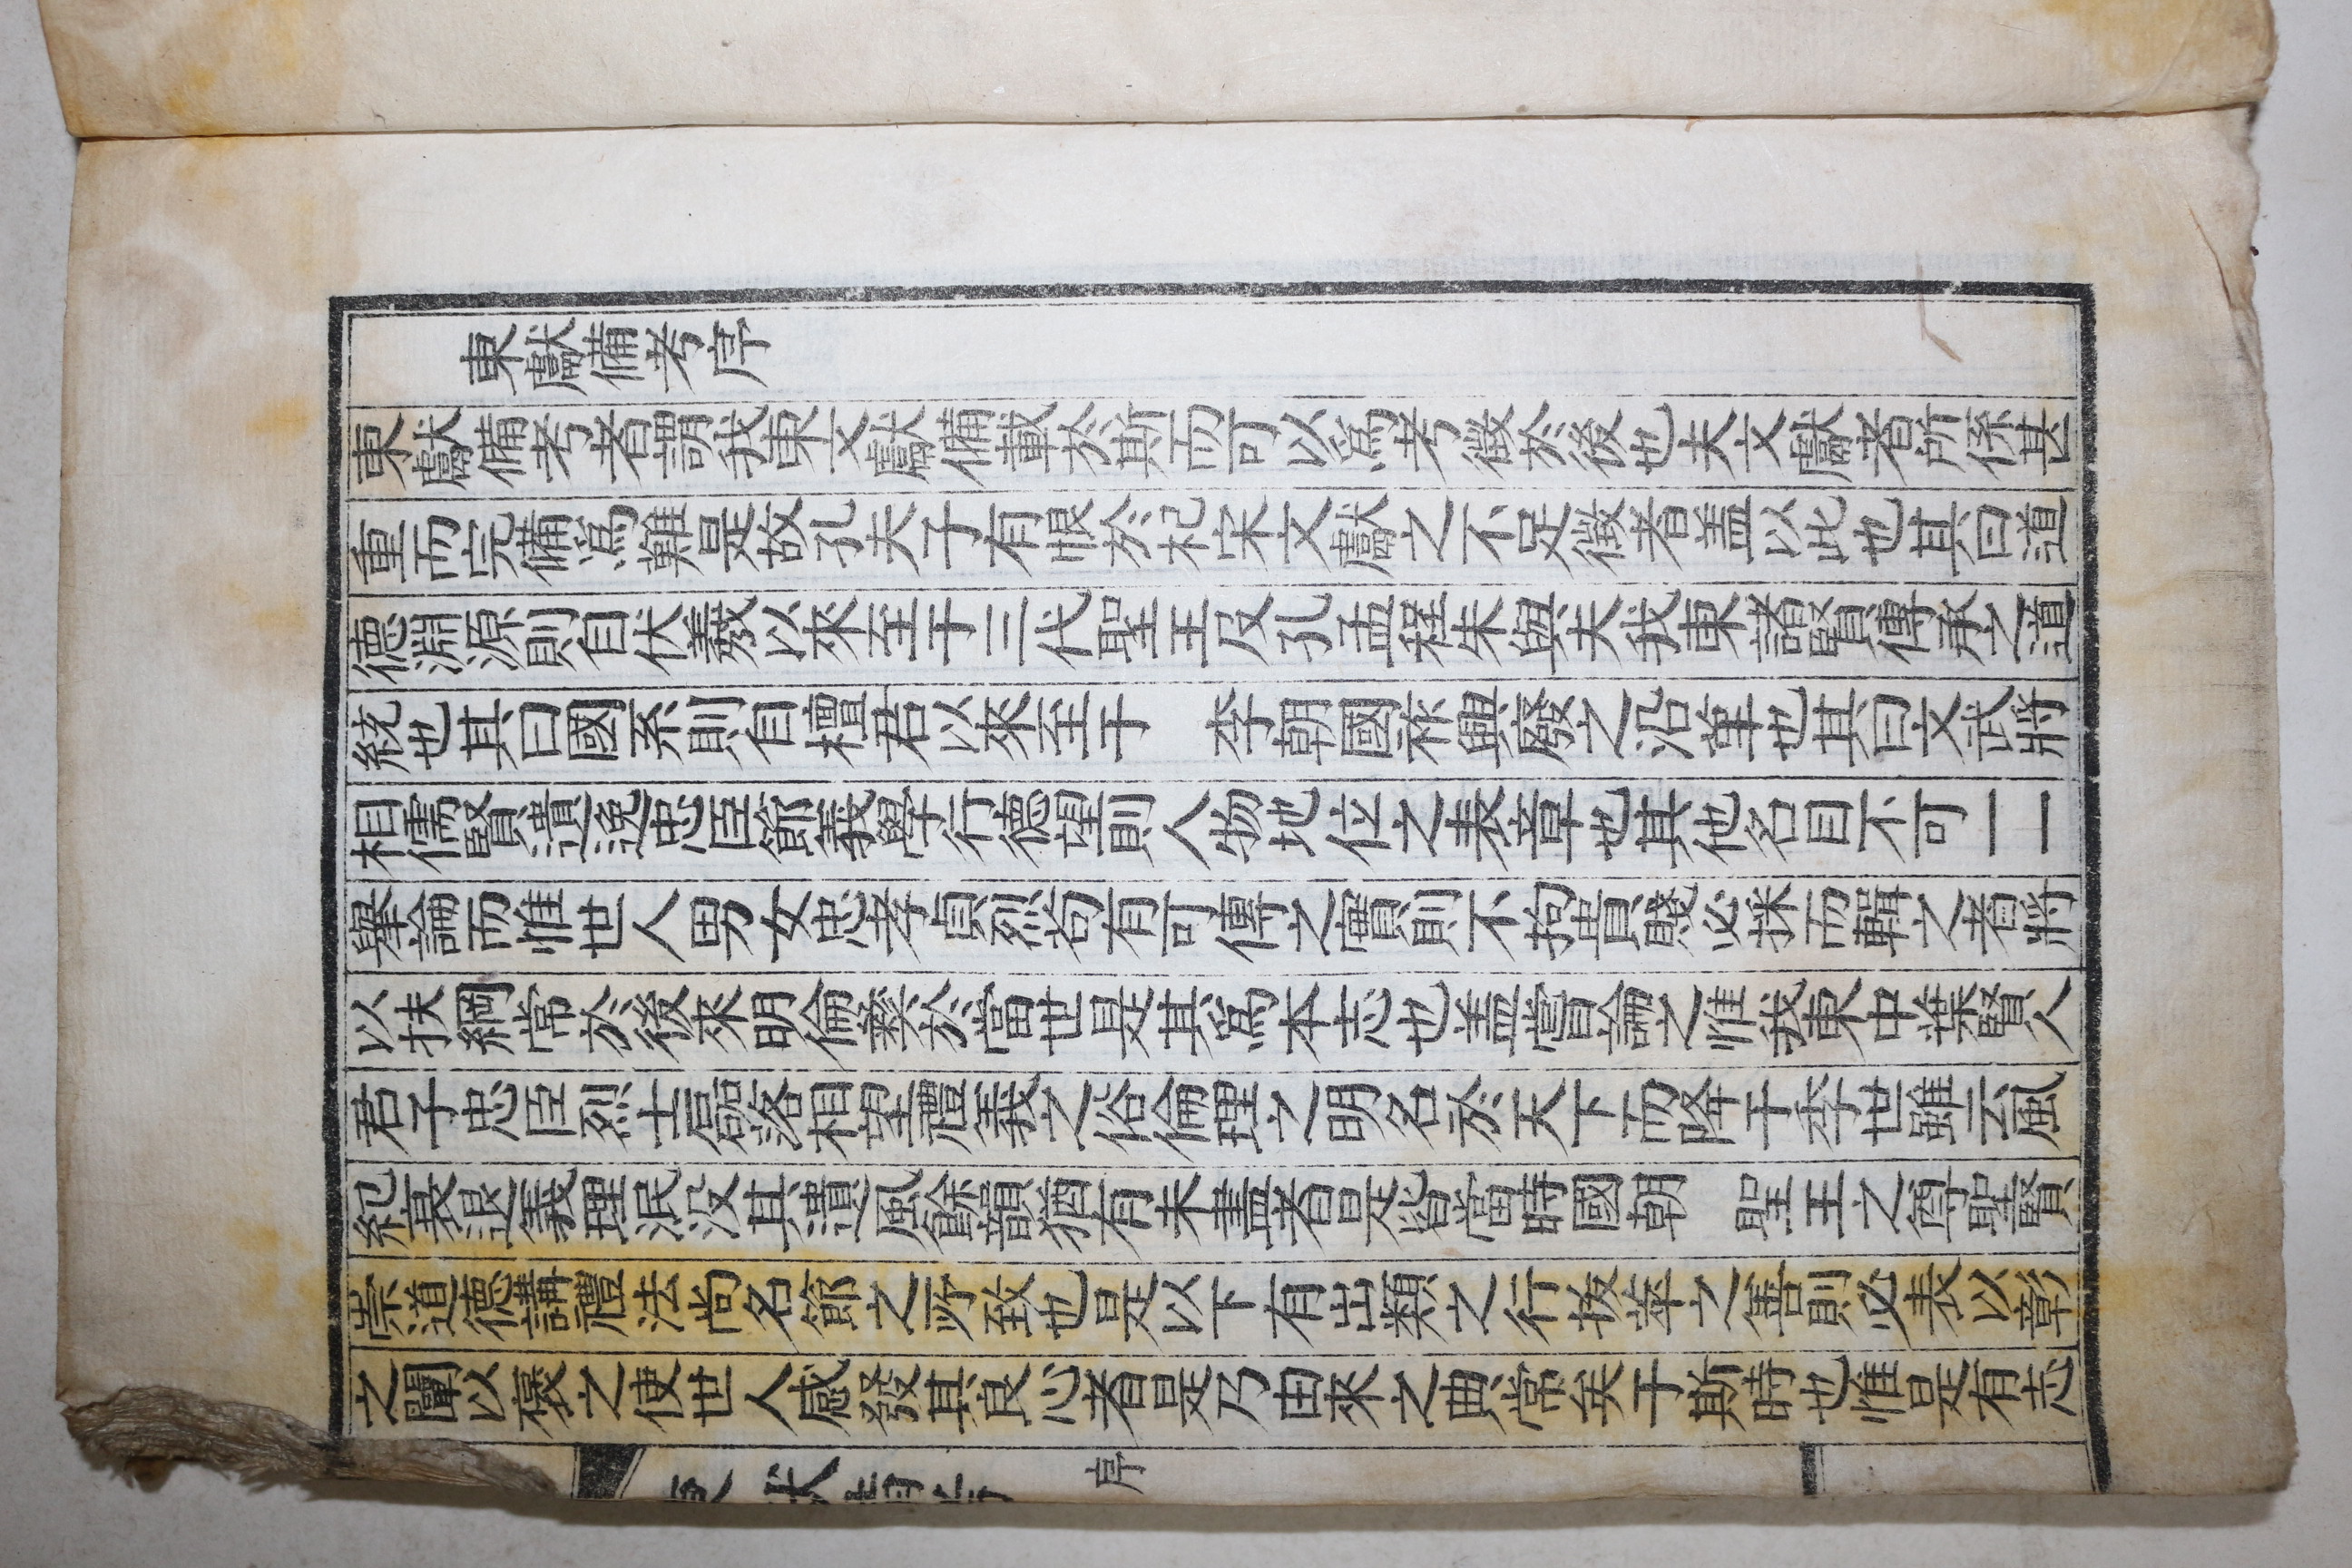 東獻備考序
東獻備考者謂我東文獻備載於斯而可以爲考徵於後也夫文獻者所係甚
重而完備爲難是故孔夫子有恨於杞宋文獻之不足徵者盖以此也其曰道
德淵源則自伏羲以來至于三代聖王及孔孟程朱與夫我東諸賢傳承之道
統也其曰國系則自檀君以來至于 李朝國祚興廢之沿革也其曰文武將
相儒賢遺逸忠臣節義學行德望則人物地位之表章也其他名目不可一一
擧論而惟世人男女忠孝貞烈苟有可傳之實則不拘貴賤必採而輯之者將
以扶綱常於後來明倫彜於當世是其爲本志也盖嘗論之惟我東中葉賢人
君子忠臣烈士磊落相望禮義之俗倫理之明名於天下而降于季世雖云風
紀衰退義理泯沒其遺風餘韻猶有未盡者是皆當時國朝 聖王之尊聖賢
崇道德講禮法尙名節之所致也是以下有出類之行拔萃之善則必表以彰
之闡以褒之使世人感發其良心者是乃由來之典常矣于斯時也惟是有志
序